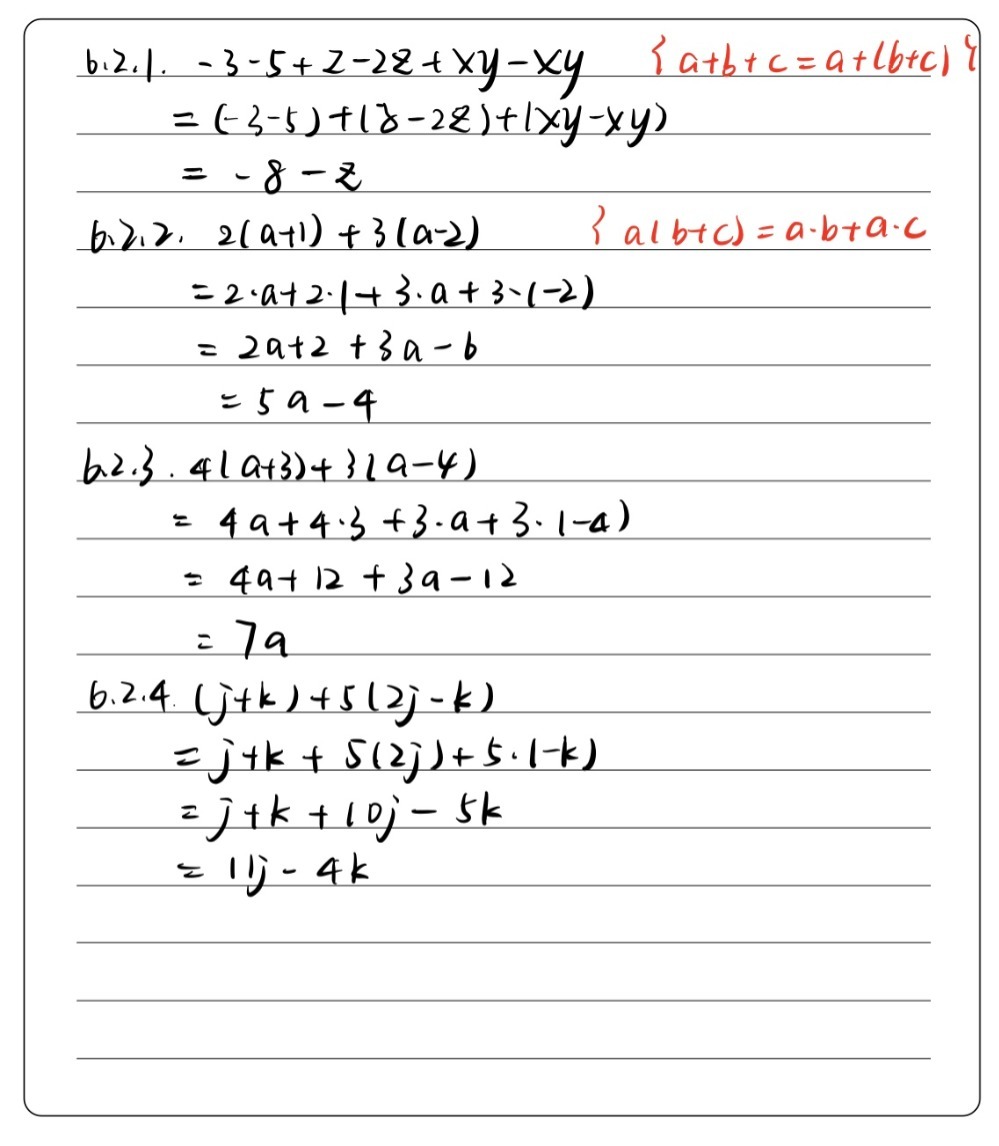 6.2.1. -3-5+z-2z+xy-xy {a+b+c=a+(b+c)}
=(-3-5)+(z-2z)+(xy-xy)
= -8-z
6.2.2. 2(a+1)+3(a-2) { a(b+c)=a·b+a·c
=2·a+2·1+3·a+3·(-2)
= 2a+2+3a-6
= 5a-4
6.2.3. 4(a+3)+3(a-4)
= 4a+4·3+3·a+3·(-4)
= 4a+12+3a-12
= 7a
6.2.4. (j+k)+5(2j-k)
=j+k+5(2j)+5·(-k)
=j+k+10j-5k
= 11j-4k